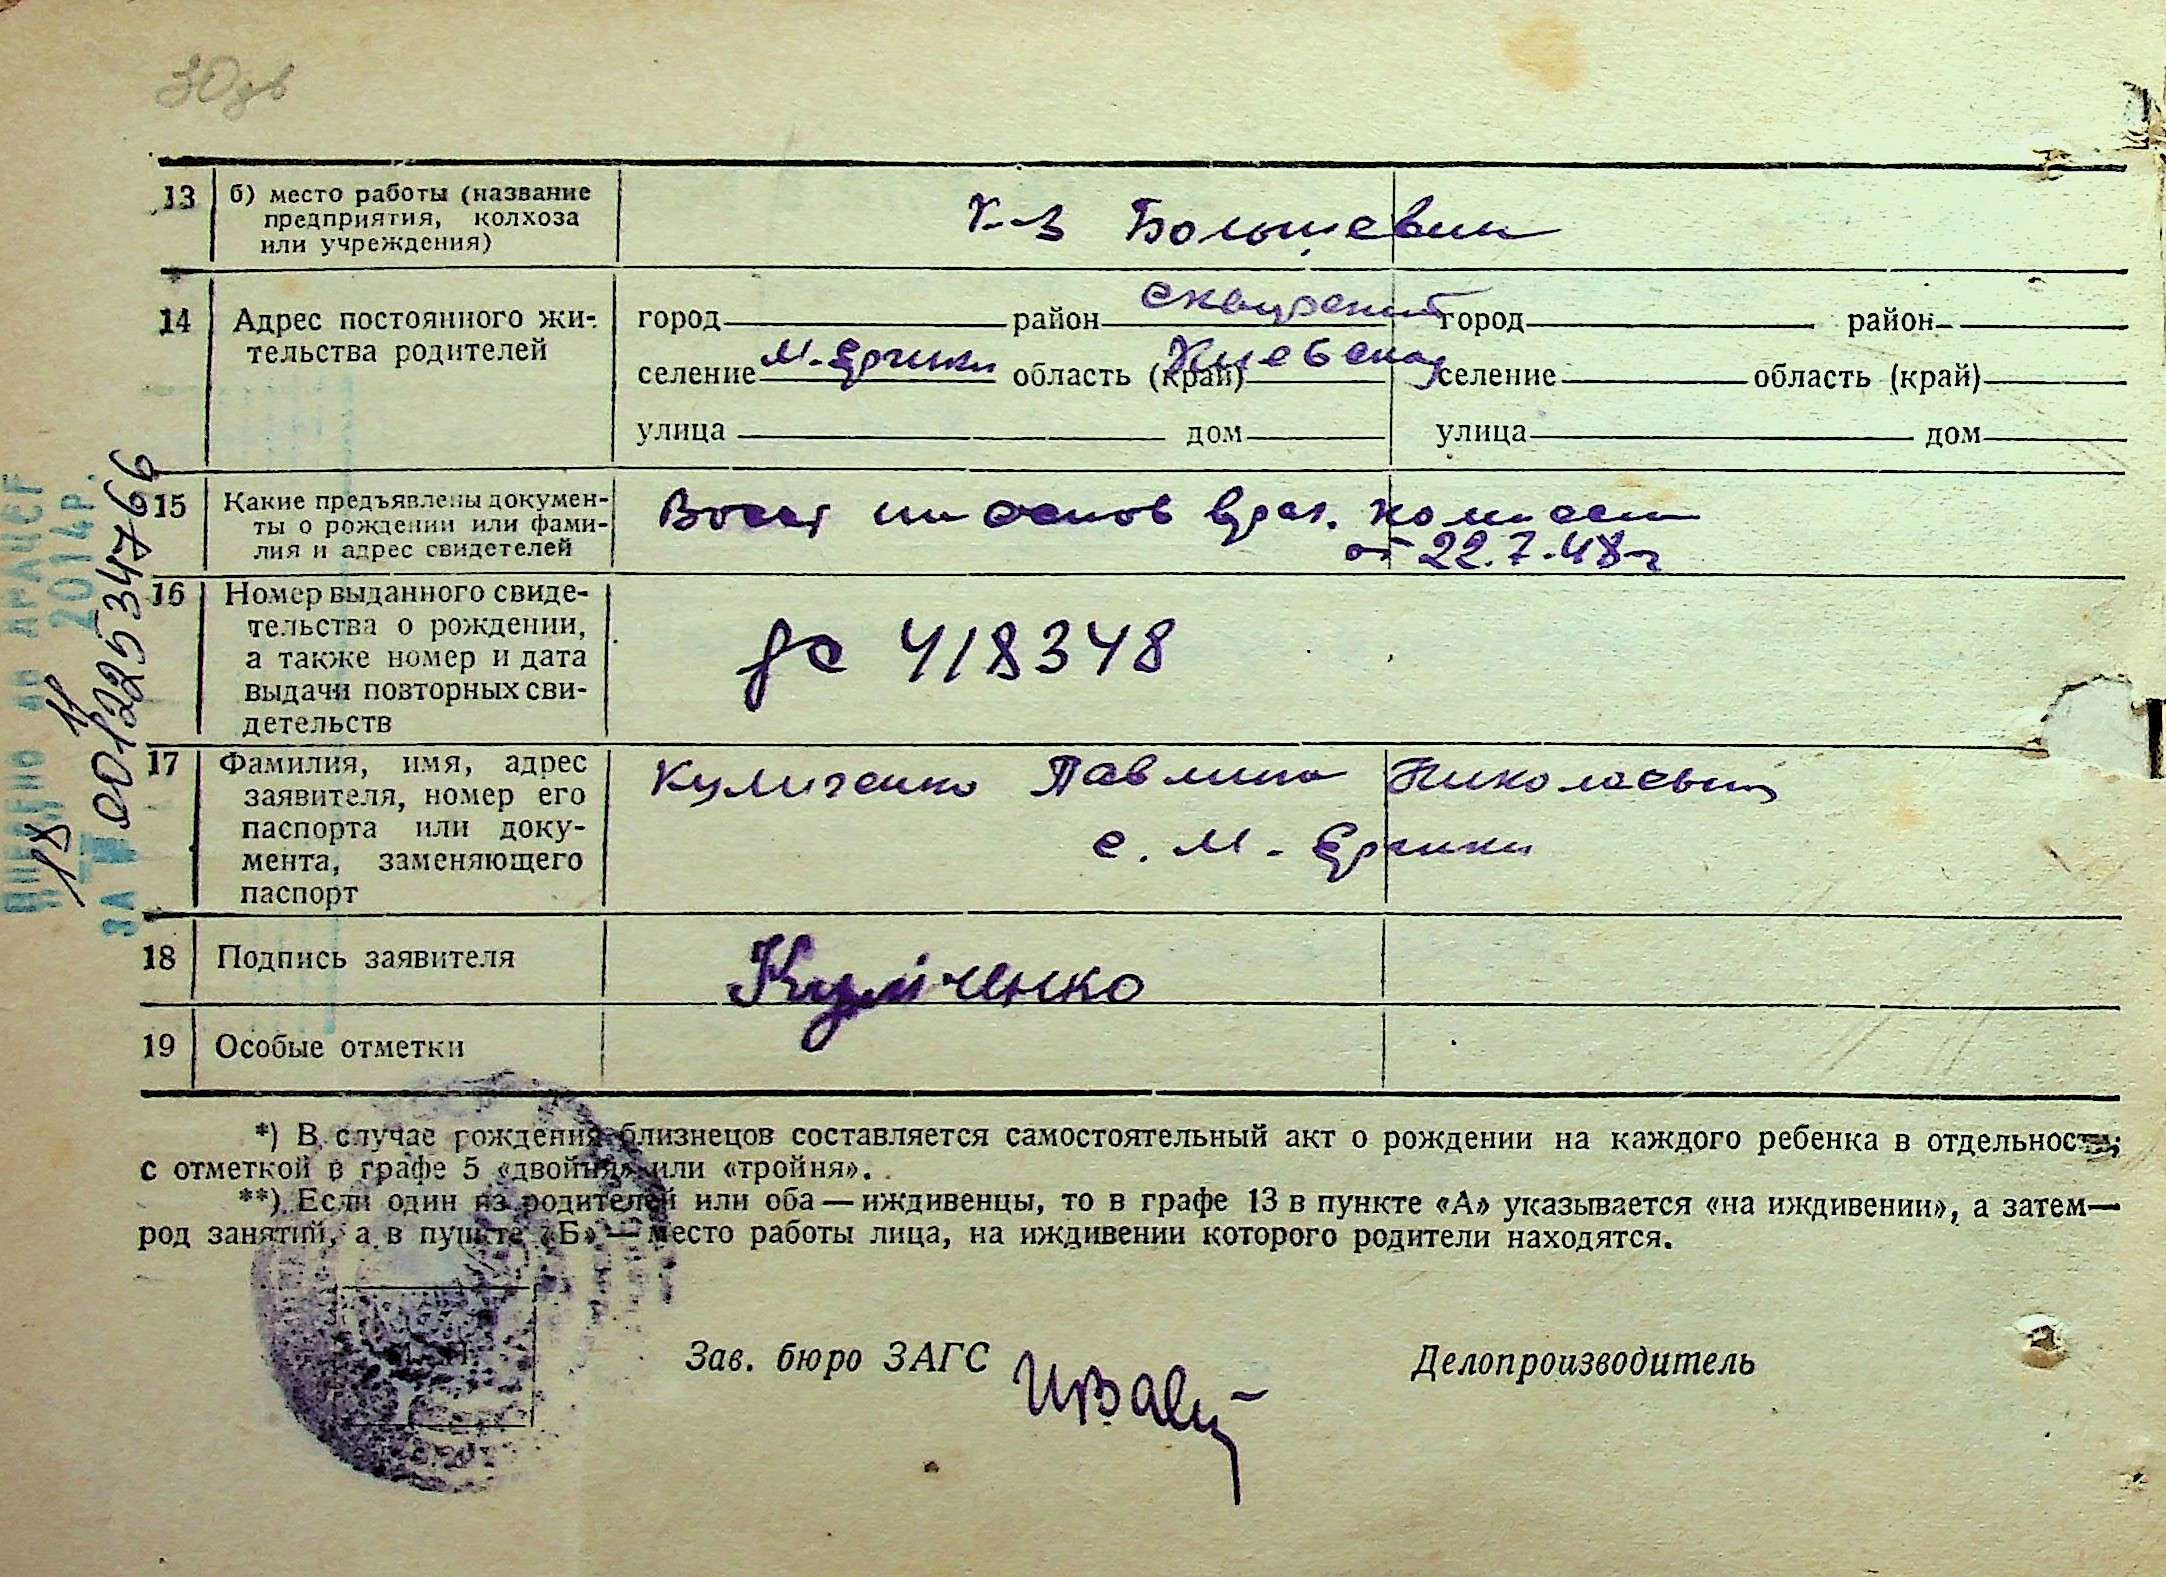 13 б) место работы (название
предприятия, колхоза
или учреждения)
К-з Большевик
14 Адрес постоянного жи-
тельства родителей
город район Сквирский город район
селение М-Ерчики область (край) Киевская селение область (край)
улица дом улица дом
15 Какие предъявлены докумен-
ты о рождении или фами-
лия и адрес свидетелей
Восст на основ врач. комиссии
от 22.7.48 г
16 Номер выданного свиде-
тельства о рождении,
а также номер и дата
выдачи повторных сви-
детельств
418348
17 Фамилия, имя, адрес
заявителя, номер его
паспорта или доку-
мента, заменяющего
паспорт
Куличенко Павлина Николаевна
с. М-Ерчики
18 Подпись заявителя
Куліченко
19 Особые отметки
*) В случае рождения близнецов составляется самостоятельный акт о рождении на каждого ребенка в отдельности,
с отметкой в графе 5 «двойня» или «тройня».
**) Если один из родителей или оба — иждивенцы, то в графе 13 в пункте «А» указывается «на иждивении», а затем —
род занятий, а в пункте «Б» — место работы лица, на иждивении которого родители находятся.
Зав. бюро ЗАГС Делопроизводитель
00122534766
18 11
2014р.
ЗА №